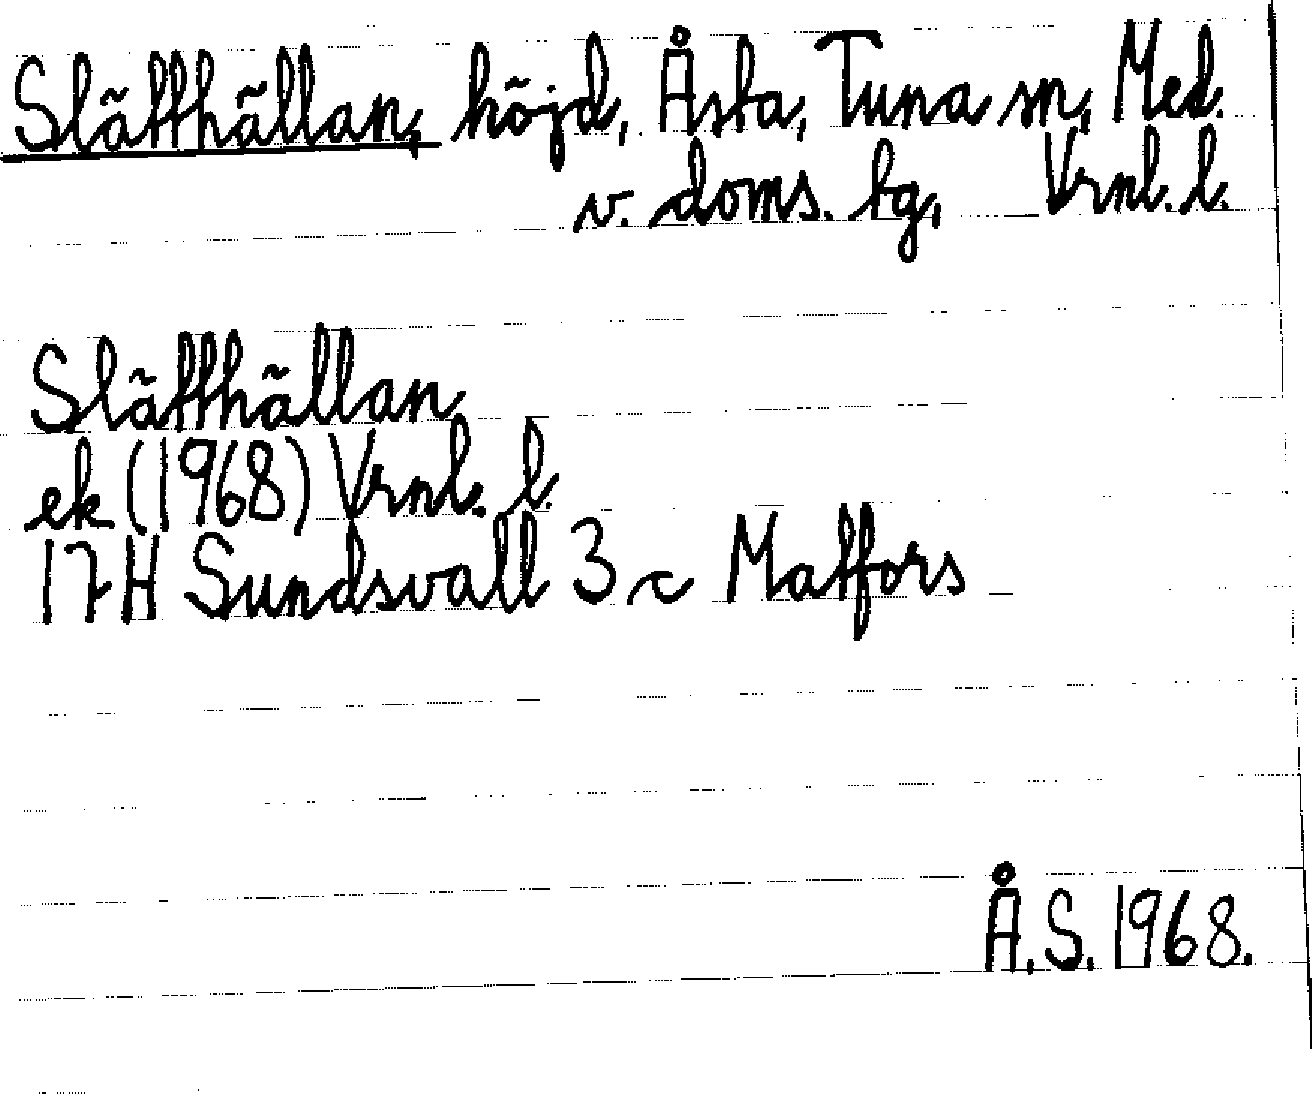 Slätthällan, höjd, Åsta, Tuna sn, Med.
v. doms. tg, Vrnl. l.
Slätthällan
ek (1968) Vrnl. l.
17H Sundsvall 3 c Matfors
Å.S. 1968.